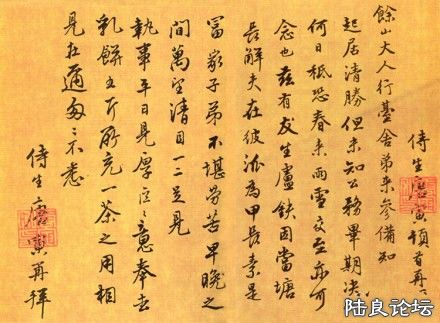 侍生唐頓首再
餘山大人行臺舍弟來參備知
起居清勝但未知公務畢期决
何日祗恐春來雨雪交至亦可
念也茲有友生盧鈇因當塘
長解夫在彼派為甲長素是
富家子弟不堪勞苦早晚之
間萬望清目一二足見
執事平日見厚之意奉去
乳餅五斤所充一茶之用相
見在邇匆〻不悉
侍生唐再拜
陆良论坛